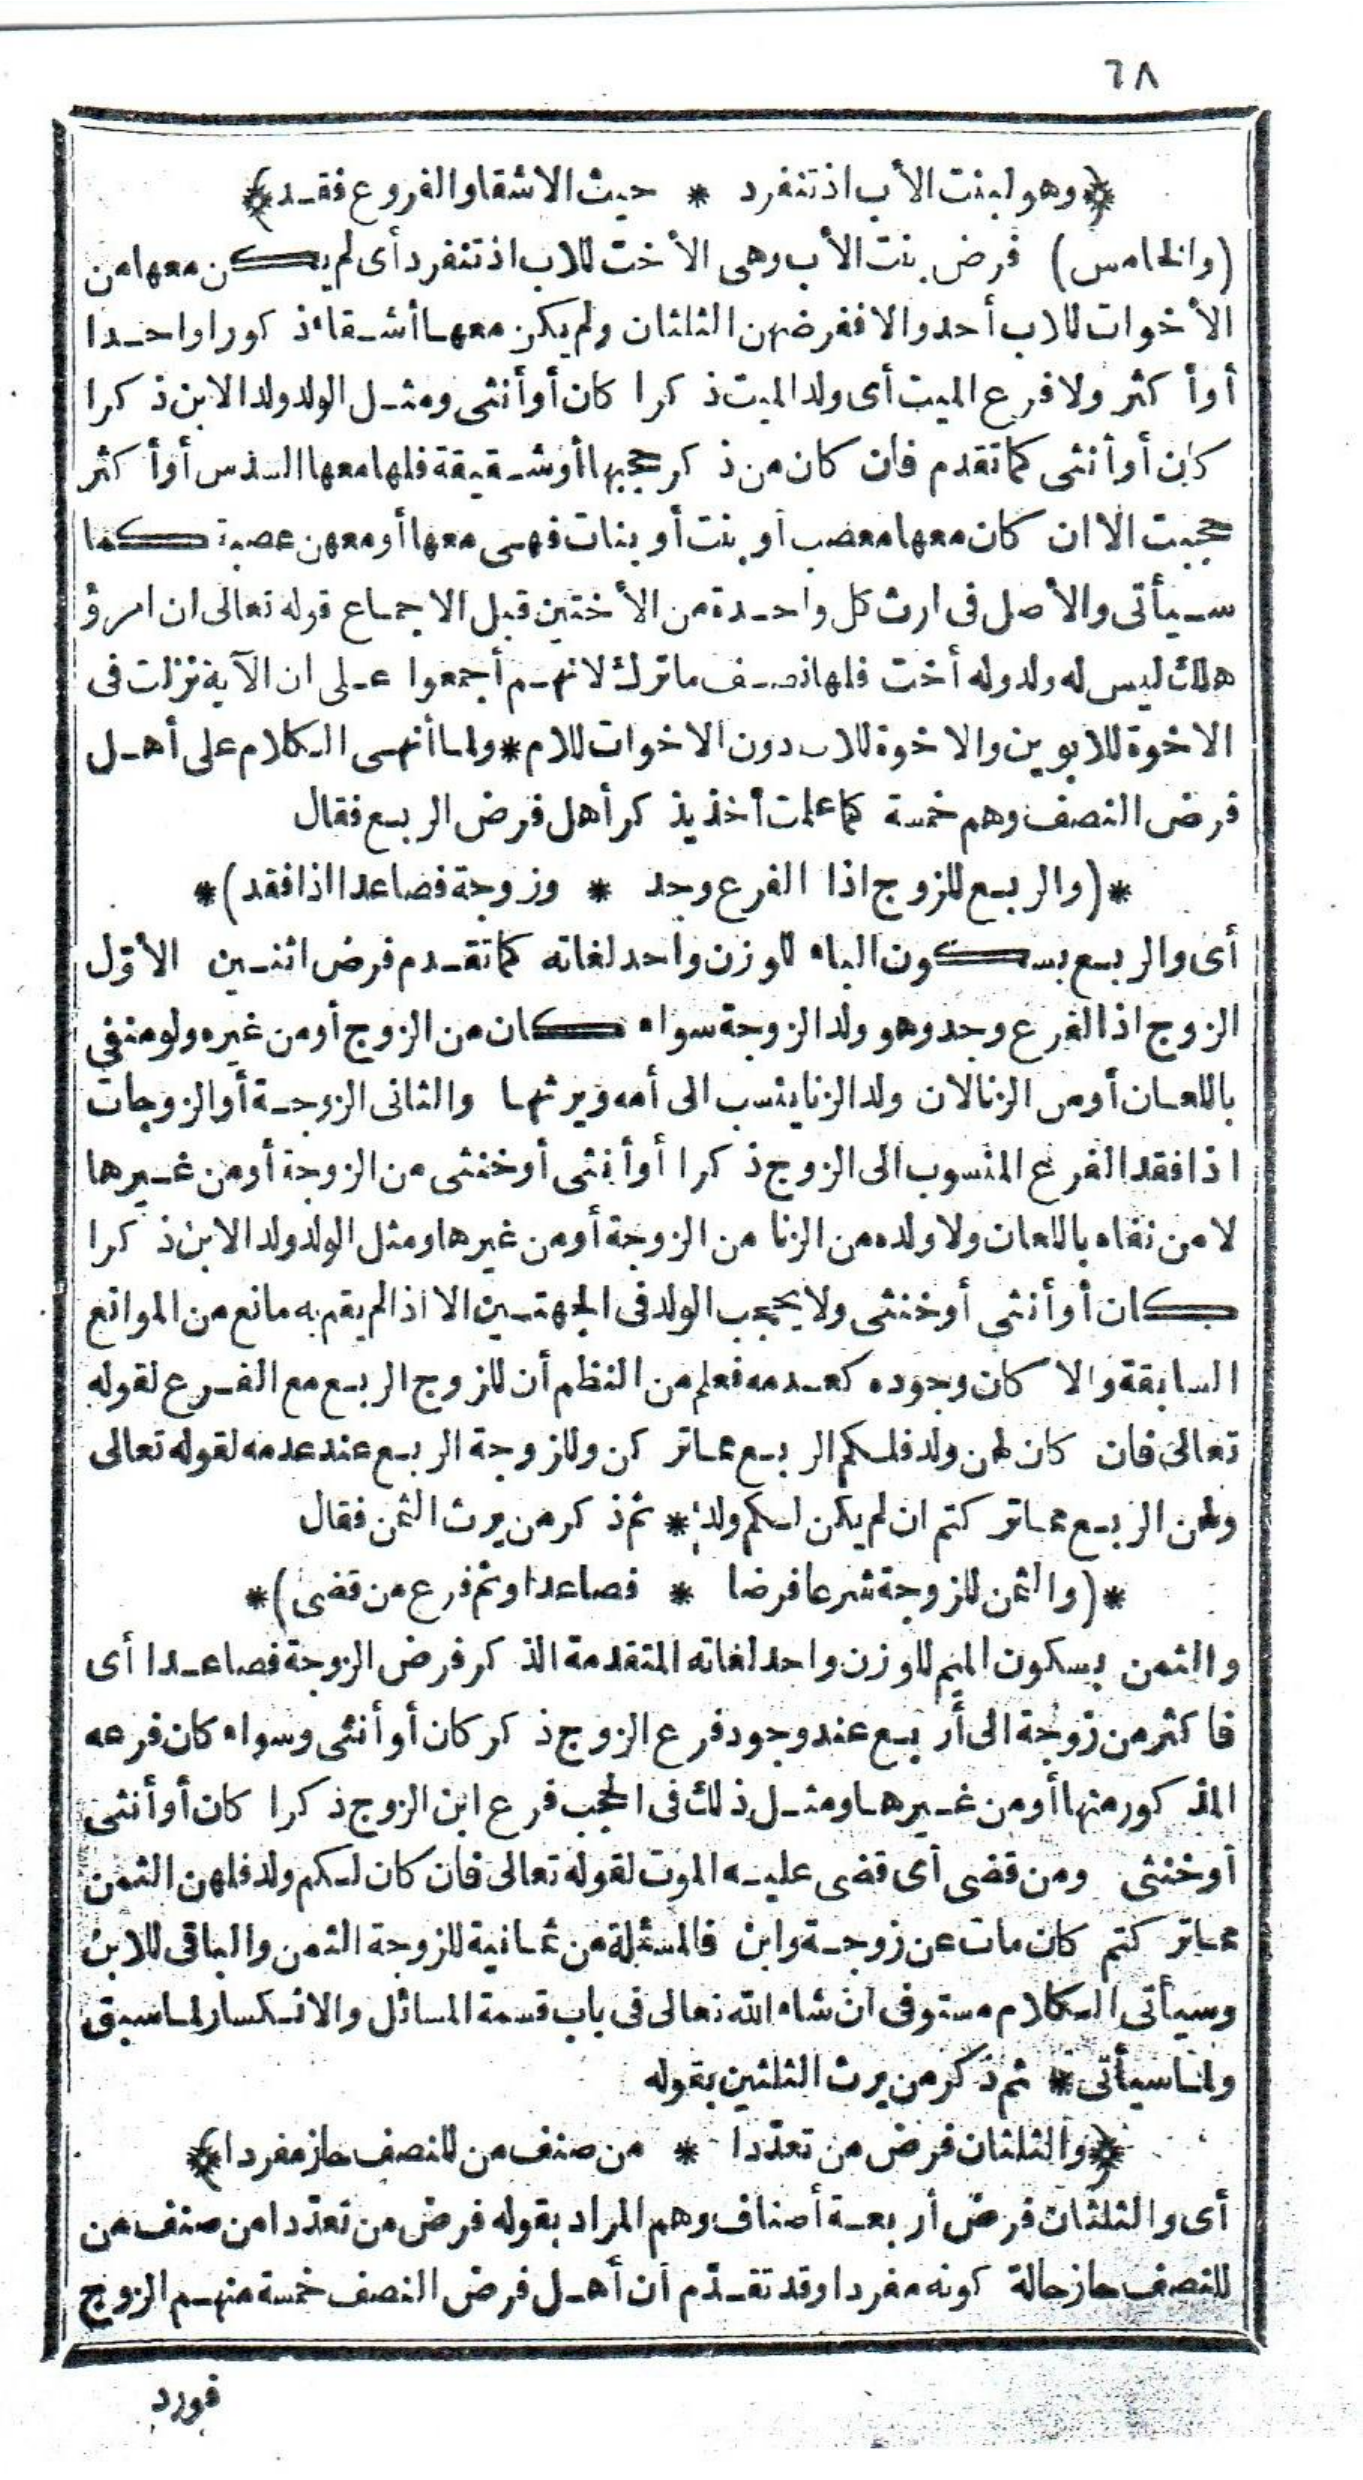 ٦٨
﴿وهو لبنت الأب اذ تنفرد * حيث الاشقا والفروع فقد﴾
(والخامس) فرض بنت الأب وهى الأخت للاب اذ تنفرد أى لم يكن معها من
الأخوات للاب أحد والا ففرضهن الثلثان ولم يكن معها أشقاء ذكورا واحدا
أو أكثر ولا فرع الميت أى ولد الميت ذكرا كان أو أنثى ومثل الولد ولد الابن ذكرا
كان أو أنثى كما تقدم فان كان من ذكر حجبها أو شقيقة فلها معها السدس أو أكثر
حجبت الا ان كان معها معصب أو بنت أو بنات فهى معها أو معهن عصبة كما
سيأتى والأصل فى ارث كل واحدة من الأختين قبل الاجماع قوله تعالى ان امرؤ
هلك ليس له ولد وله أخت فلها نصف ما ترك لانهم أجمعوا على ان الآية نزلت فى
الاخوة للابوين والاخوة للاب دون الاخوات للام * ولما أنهى الكلام على أهل
فرض النصف وهم خمسة كما علمت أخذ يذكر أهل فرض الربع فقال
*(والربع للزوج اذا الفرع وجد * وزوجة فصاعدا اذا فقد)*
أى والربع بسكون الباء للوزن واحد لغاته كما تقدم فرض اثنين الأوّل
الزوج اذا الفرع وجد وهو ولد الزوجة سواء كان من الزوج أو من غيره ولو منفي
باللعان أو من الزنا لان ولد الزنا ينسب الى أمه ويرثها والثانى الزوجة أو الزوجات
اذا فقد الفرع المنسوب الى الزوج ذكرا أو أنثى أو خنثى من الزوجة أو من غيرها
لا من نفاه باللعان ولا ولده من الزنا من الزوجة أو من غيرها ومثل الولد ولد الابن ذكرا
كان أو أنثى أو خنثى ولا يحجب الولد فى الجهتين الا اذا لم يقم به مانع من الموانع
السابقة والا كان وجوده كعدمه فعلم من النظم أن للزوج الربع مع الفرع لقوله
تعالى فان كان لهن ولد فلكم الربع مما تركن وللزوجة الربع عند عدمه لقوله تعالى
ولهن الربع مما تركتم ان لم يكن لكم ولد * ثم ذكر من يرث الثمن فقال
*(والثمن للزوجة شرعا فرضا * فصاعدا وثم فرع من قضى)*
والثمن بسكون الميم للوزن واحد لغاته المتقدمة الذكر فرض الزوجة فصاعدا أى
فاكثر من زوجة الى أربع عند وجود فرع الزوج ذكر كان أو أنثى وسواء كان فرعه
المذكور منها أو من غيرها ومثل ذلك فى الحجب فرع ابن الزوج ذكرا كان أو أنثى
أو خنثى ومن قضى أى قضى عليه الموت لقوله تعالى فان كان لكم ولد فلهن الثمن
مما تركتم كان مات عن زوجة وابن فالمسئلة من ثمانية للزوجة الثمن والباقى للابن
وسيأتى الكلام مستوفى ان شاء الله تعالى فى باب قسمة المسائل والانكسار لما سبق
ولما سيأتى * ثم ذكر من يرث الثلثين بقوله
﴿والثلثان فرض من تعدّدا * من صنف من للنصف حاز مفردا﴾
أى والثلثان فرض أربعة أصناف وهم المراد بقوله فرض من تعدّدا من صنف من
للنصف حاز حالة كونه مفردا وقد تقدّم أن أهل فرض النصف خمسة منهم الزوج
فورد